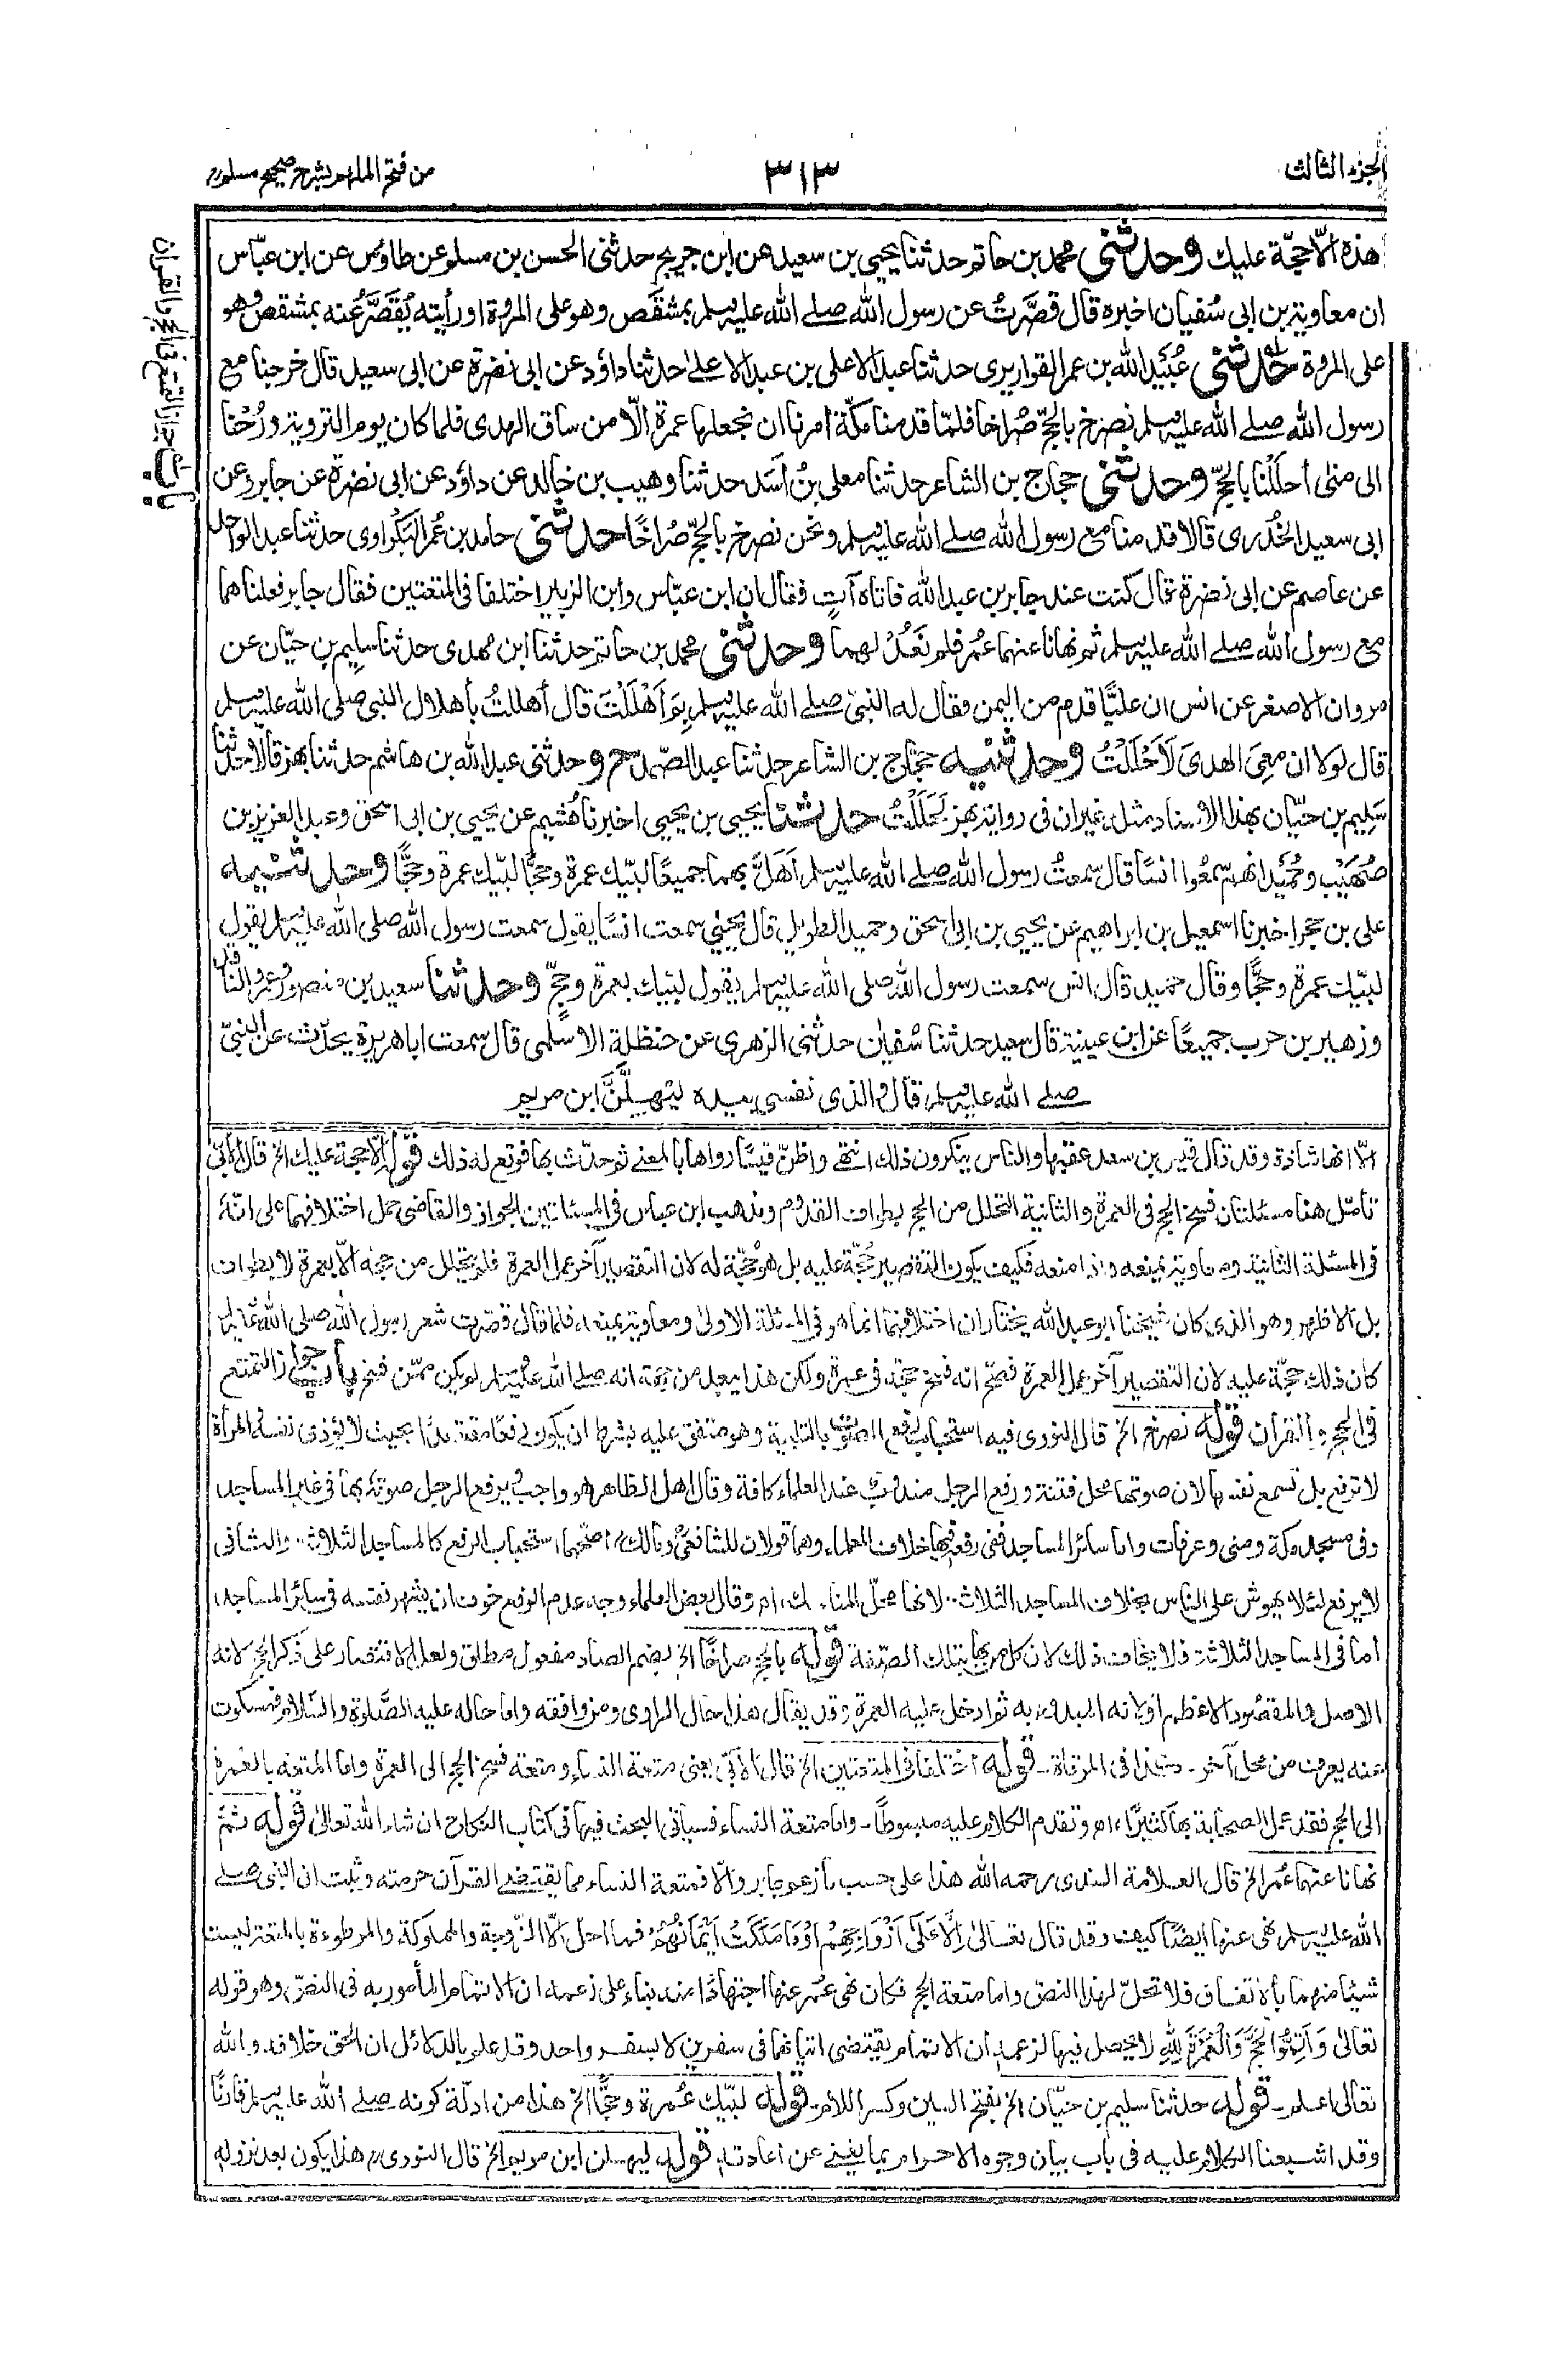 الجزء الثالث
٣١٣
من فتح الملهم بشرح صحيح مسلم
باب جواز التمتع في الحج والقران
هذه الّا حجّة عليك وحدثني محمد بن حاتم حدثنا يحيى بن سعيد عن ابن جريج حدثني الحسن بن مسلم عن طاؤس عن ابن عبّاس
ان معاوية بن ابى سُفيان اخبره قال قصَّرتُ عن رسول الله صلے الله عليه وسلم بمشقَص وهو على المروة او رأيته يُقَصَّرُ عنه بمشقص وهو
على المروة حدثني عُبَيد الله بن عمر القواريرى حدثنا عبد الاعلى بن عبد الاعلےٰ حدثنا داؤد عن ابى نضرة عن ابى سعيد قال خرجنا مع
رسول الله صلے الله عليه وسلم نصرخ بالحجّ صُراخا فلمّا قدمنا مكّة امرنا ان نجعلها عمرة الّا من ساق الهدى فلما كان يوم التروية ورُحْنا
الى منىٰ أهللنا بالحجّ وحدثني حجاج بن الشاعر حدثنا معلى بنُ اَسَد حدثنا وهيب بن خالد عن داؤد عن ابى نضرة عن جابر وعن
ابى سعيد الخُدرى قالا قدمنا مع رسول الله صلے الله عليه وسلم ونحن نصرخ بالحجّ صُراخًا حدثني حامد بن عُمر البَكْراوى حدثنا عبد الواحد
عن عاصم عن ابى نضرة قال كنت عند جابر بن عبد الله فاتاه آتٍ فقال ان ابن عبّاس وابن الزبير اختلفا فى المتعتين فقال جابر فعلناهما
مع رسول الله صلے الله عليه وسلم ثم نهانا عنهما عُمر فلم نَعُدْ لهما وحدثني محمد بن حاتم حدثنا ابن مهدى حدثنا سليم بن حيّان عن
مروان الاصغر عن انس ان عليًّا قدم من اليمن فقال له النبىّ صلے الله عليه وسلم بِمَ اَهْلَلْتَ قال أهللتُ بأهلال النبى صلى الله عليه وسلم
قال لولا ان معِىَ الهدىَ لَاَحْلَلْتُ وحدثنيه حجّاج بن الشاعر حدثنا عبد الصّمد ح وحدثنى عبد الله بن هاشم حدثنا بهز قالا حدثنا
سَلِيم بن حيّان بهذا الاسناد مثله غير ان فى رواية بهز لَحَلَلْتُ حدثنا يحيى بن يحيى اخبرنا هُشيم عن يحيى بن ابى اسحق وعبد العزيز بن
صُهَيْب وحُمَيد انهم سمعُوا انسًا قال سمعتُ رسول الله صلے الله عليه وسلم اَهَلَّ بهما جميعًا لبّيك عمرة وحجًّا لبّيك عمرة وحجًّا وحدثنيه
على بن حجر اخبرنا اسمعيل بن ابراهيم عن يحيى بن ابى اسحق وحميد الطويل قال يحيٰى سمعت انسًا يقول سمعت رسول الله صلى الله عليه وسلم يقول
لبّيك عمرة وحجًّا وقال حميد قال انس سمعت رسول الله صلى الله عليه وسلم يقول لبّيك بعمرة وحجّ وحدثنا سعيد بن منصور وعمرو الناقد
وزهير بن حرب جميعًا عن ابن عيينة قال سعيد حدثنا سُفيٰن حدثنى الزهرى عن حنظلة الاسلمى قال سمعت ابا هريرة يحدّث عن النبىّ
صلے الله عليه وسلم قال والذى نفسى بيده ليُهِلَّنَّ ابن مريم
الّا انها شاذة وقد قال قيس بن سعد عقبها والناس ينكرون ذلك انتهٰى واظنّ قيسًا رواها بالمعنى ثم حدّث بها فوقع له ذلك قوله الّا حجة عليك الخ قال الابّى
تأمّل هنا مسئلتان فسخ الحج فى العمرة والثانية التحلل من الحج بطواف القدوم ومذهب ابن عباس فى المسئلتين الجواز والقاضى حمل اختلافهما على انّه
فى المسئلة الثانية ومعاوية يمنعه واذا منعه فكيف يكون التقصير حُجّة عليه بل هو حُجّة له لان التقصير آخر عمل العمرة فلم يتحلل من حجه الّا بعمرة لا بطواف
بل الاظهر وهو الذى كان شيخنا ابو عبد الله يختار ان اختلافهما انما هو فى المسئلة الاولىٰ ومعاوية يمنعه، فلما قال قصّرت شعر رسول الله صلى الله عليه وسلم
كان ذلك حجّة عليه لان التقصير آخر عمل العمرة فصحّ انه فسخ حجّه فى عمرة ولكن هذا يبعد من جهة انه صلے الله عليه وسلم لم يكن ممّن فسخ باب جواز التمتع
فى الحج والقران قوله نصرخ الخ قال النووى فيه استحباب رفع الصوت بالتلبية وهو متفق عليه بشرط ان يكون رفعًا مقتصدًا بحيث لا يؤذى نفسه والمرأة
لا ترفع بل تسمع نفسها لان صوتها محل فتنة ورفع الرجل مندوب عند العلماء كافة وقال اهل الظاهر هو واجب ويرفع الرجل صوته بها فى غير المساجد
وفى مسجد مكة ومنى وعرفات واما سائر المساجد ففى رفعه فيها خلاف للعلماء وهما قولان للشافعى ومالك، اصحّهما استحباب الرفع كالمساجد الثلاثة والثانى
لا يرفع لئلا يهوش على الناس بخلاف المساجد الثلاثة لانها محلّ المناسك، اه وقال بعض العلماء وجه عدم الرفع خوف ان يشهر نفسه فى سائر المساجد،
اما فى المساجد الثلاثة فلا يخاف ذلك لان كل من بها بتلك الصّفة قوله بالحج صراخًا الخ بضم الصاد مفعول مطلق ولعل الاقتصار على ذكر الحج لانه
الاصل والمقصُود الاعظم او لانه المبدوء به ثم ادخل عليه العمرة وقد يقال هذا حال الراوى ومن وافقه واما حاله عليه الصّلوة والسّلام فمسكوت
عنه يعرف من محل آخر - كذا فى المرقاة - قوله اختلفا فى المتعتين الخ قال الابّى يعنى متعة النساء ومتعة فسخ الحج الى العمرة واما المتعه بالعمرة
الى الحج فقد عمل الصحابة بها كثيرًا، اه وتقدم الكلام عليه مبسوطًا - واما متعة النساء فسيأتى البحث فيها فى كتاب النكاح ان شاء الله تعالىٰ قوله ثمّ
نهانا عنهما عُمر الخ قال العلامة السندى رحمه الله هذا على حسب ما زعم جابر والّا فمتعة النساء مما يقتضے القرآن حرمته وثبت ان النبى صلے
الله عليه وسلم نهى عنها ايضًا كيف وقد قال تعالىٰ اِلَّا عَلٰى اَزْوَاجِهِمْ اَوْ مَا مَلَكَتْ اَيْمَانُهُمْ فما احلّ الّا الزّوجة والمملوكة، والموطوءة بالمتعة ليست
شيئا منهما بالاتفاق فلا تحلّ لهذا النص واما متعة الحج فكان نهى عُمر عنها اجتهادًا منه بناءً على زعمه ان الاتمام المأمور به فى النصّ وهو قوله
تعالىٰ وَاَتِمُّوا الْحَجَّ وَالْعُمْرَةَ لِلّٰهِ لا يحصل فيها لزعمه ان الاتمام يقتضى اتيانهما فى سفرين لا بسفر واحد وقد علم بالدلائل ان الحق خلافه والله
تعالى اعلم - قوله حدثنا سليم بن حيّان الخ بفتح السين وكسر اللام - قوله لبّيك عُمرة وحجًّا الخ هذا من ادلّة كونه صلے الله عليه وسلم قارنًا
وقد اشبعنا الكلام عليه فى باب بيان وجوه الاحرام بما يغنى عن اعادته قوله ليهلن ابن مريم الخ قال النووى هذا يكون بعد نزوله